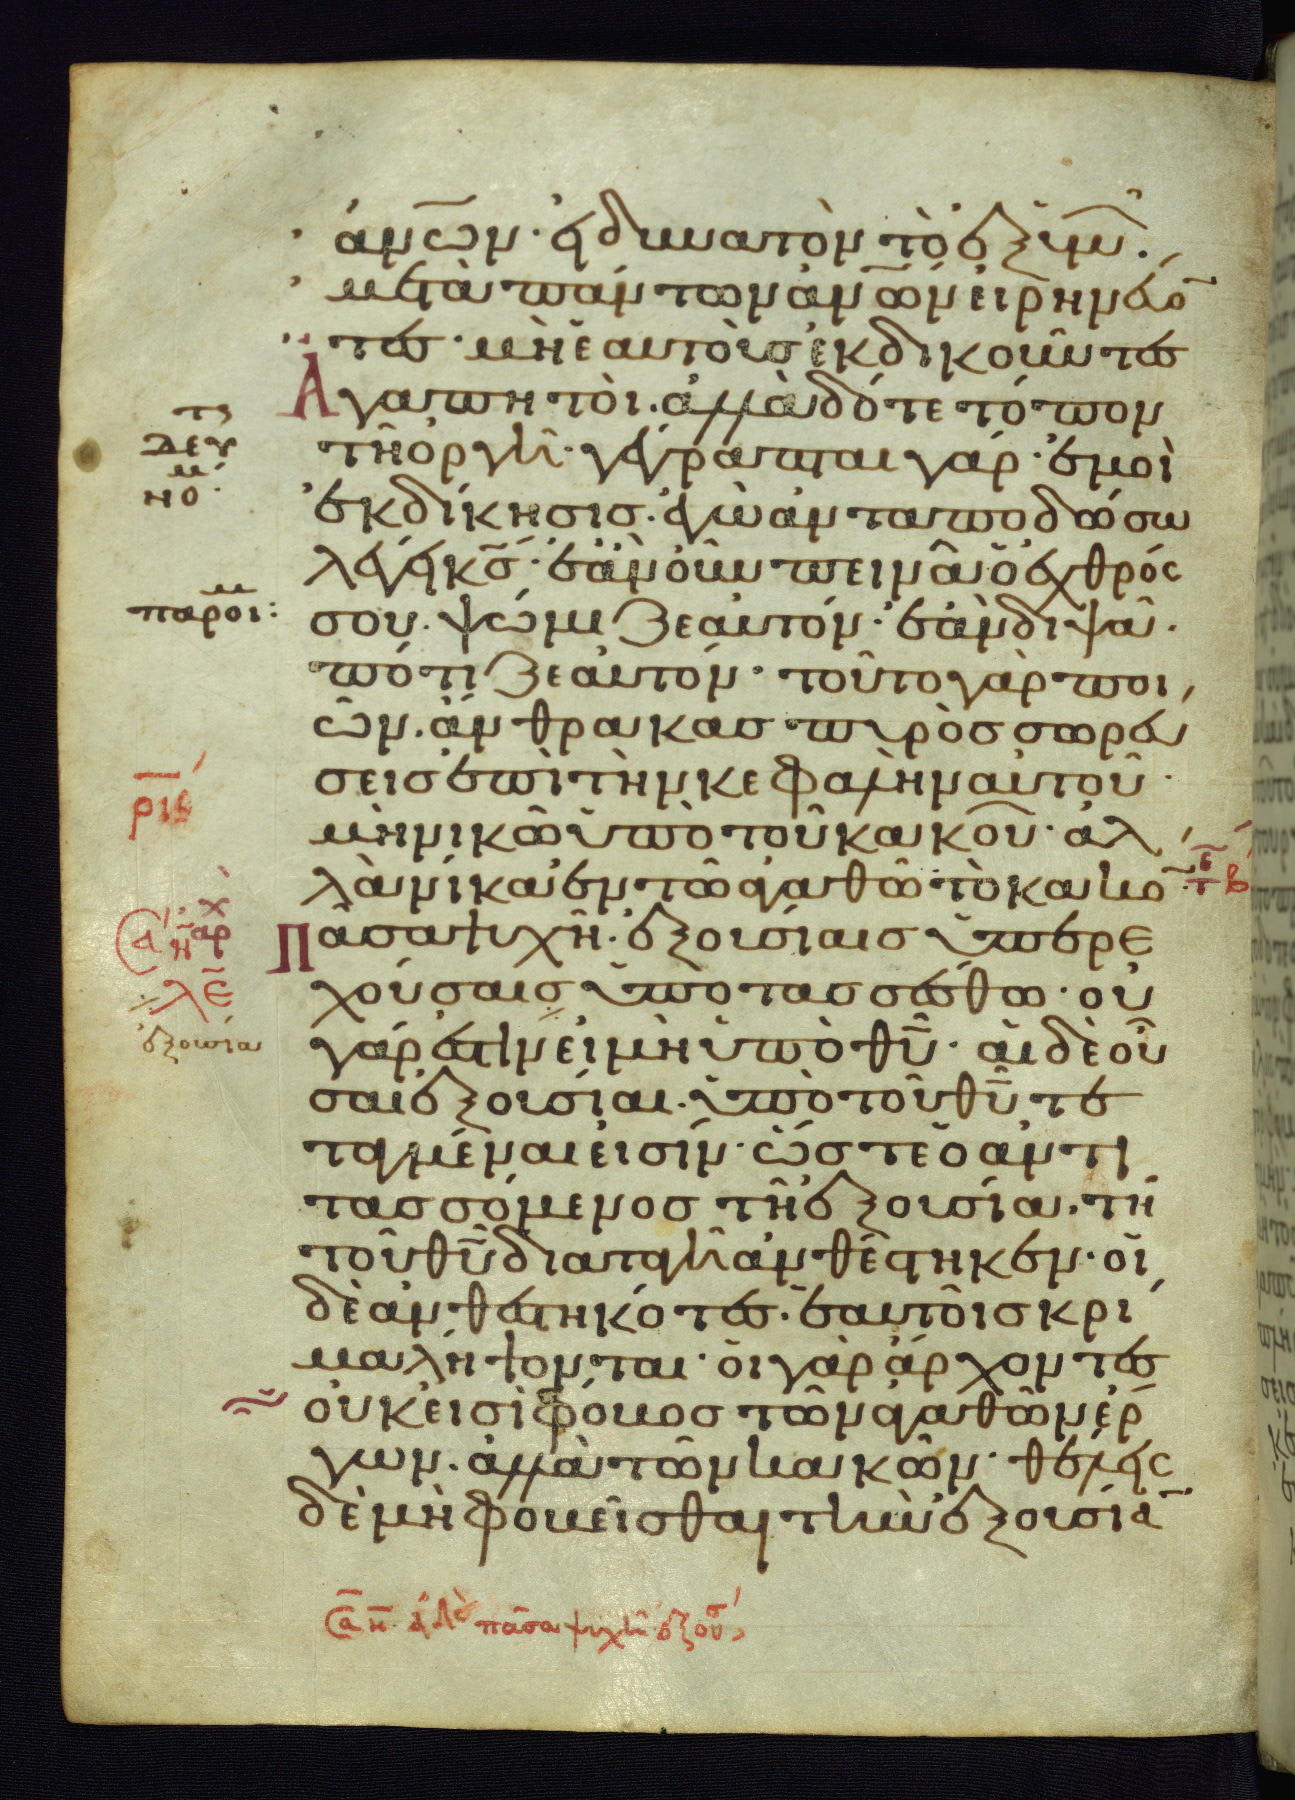 ἀν̅ων· εἰ δυνατὸν τὸ ἐξ ὑμῶν·
μετὰ πάντων ἀν̅ων εἰρηνεύο̅
τες· μὴ ἑαυτοὺς ἐκδικοῦντες
Ἀγαπητοὶ· ἀλλὰ δότε τόπον
τῆ ὀργῆ· γέγραπται γάρ· ἐμοὶ
ἐκδίκησις· ἐγὼ ἀνταποδώσω
λέγει κ̅ς· ἐὰν οὖν πεινᾶ ὁ ἐχθρός
σου· ψώμιζε αὐτόν· ἐὰν διψᾶ·
πότιζε αὐτόν· τοῦτο γὰρ ποι
ῶν· ἄνθρακας πυρὸς σωρεύ
σεις ἐπὶ τὴν κεφαλὴν αὐτοῦ·
μὴ νικῶ ὑπὸ τοῦ κακοῦ· ἀλ
λὰ νίκα ἐν τῶ ἀγαθῶ τὸ κακό̅
Πᾶσα ψυχῆ· ἐξουσίαις ὑπερε
χούσαις ὑποτασσέσθω· οὐ
γάρ ἐστιν εἰ μὴ ὑπὸ θ̅υ· αἱ δὲ οὖ
σαι ἐξουσίαι· ὑπὸ τοῦ θ̅υ τε
ταγμέναι εἰσίν· ὥστε ὁ ἀντι
τασσόμενος τῆ ἐξουσία· τῆ
τοῦ θ̅υ διαταγῆ ἀνθέστηκεν· οἱ
δὲ ἀνθεστηκότες· ἑαυτοῖς κρί
μα λήψονται· οἱ γὰρ ἄρχοντες
οὐκ εἰσὶ φόβος τῶν ἀγαθῶν ἔρ
γων· ἀλλὰ τῶν κακῶν· θέλεις
δὲ μὴ φοβεῖσθαι τὴν ἐξουσία̅
δευ
νο
παροι:
ρις
ἀρχ
λε
ἐξουσία
τε β
πᾶσα ψυχὴ ἐξου